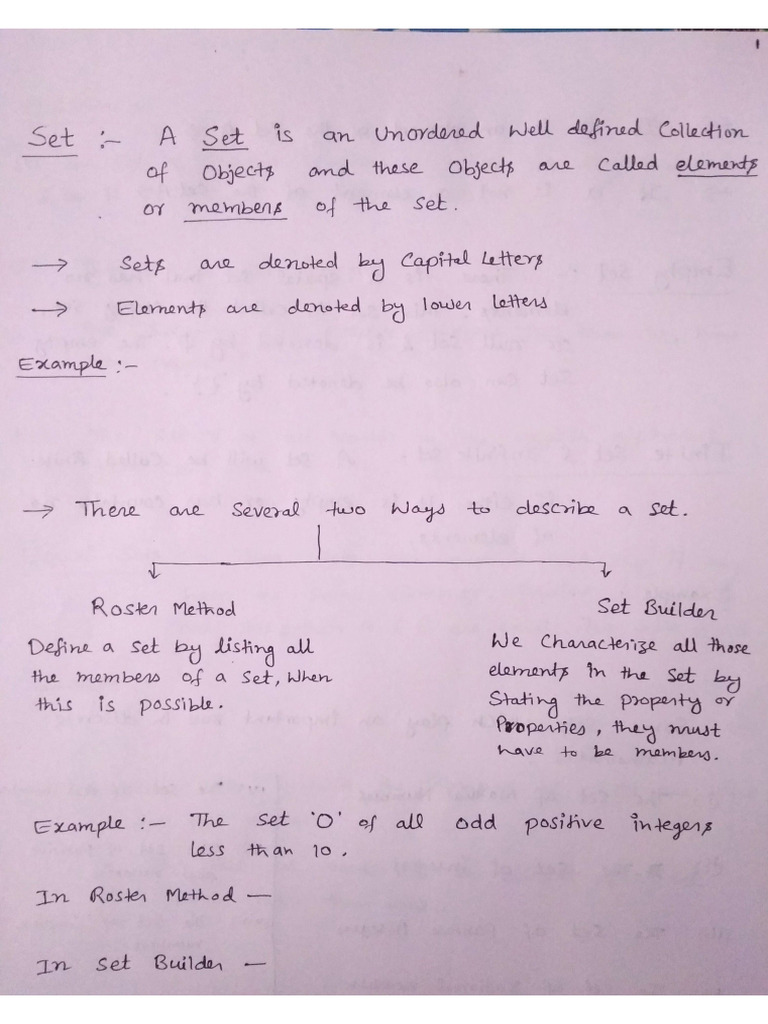 1
Set :- A Set is an Unordered Well defined Collection
of Objects and these Objects are Called elements
or members of the Set.
→ Sets are denoted by Capital Letters
→ Elements are denoted by lower letters
Example :-
→ There are Several two Ways to describe a set.
Roster Method
Define a Set by listing all
the members of a Set, When
this is possible.
Set Builder
We Characterize all those
elements in the Set by
Stating the property or
Properties, they must
have to be members.
Example :- The Set 'O' of all odd positive integers
less than 10.
In Roster Method —
In Set Builder —